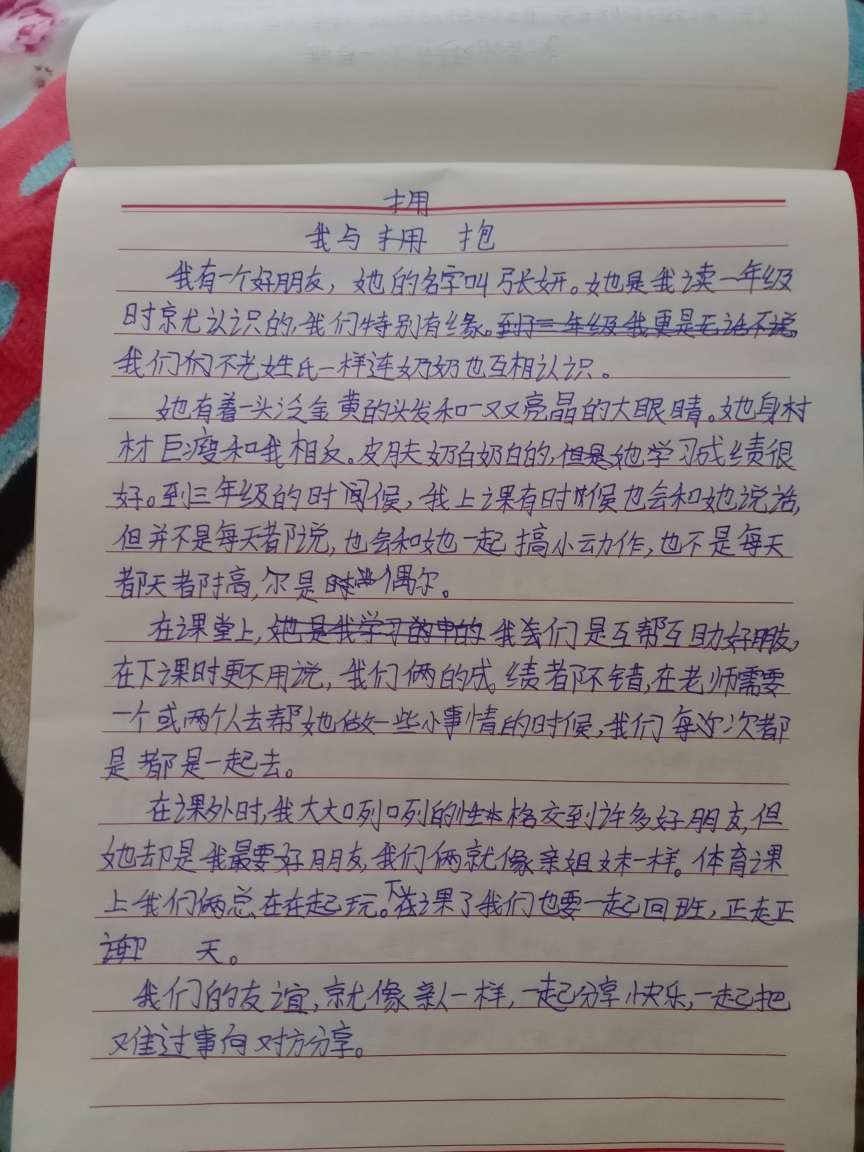 拥
我与拥 抱
我有一个好朋友，她的名字叫张妍。她是我读一年级
时就认识的，我们特别有缘。到了三年级我更是无话不说
我们俩不光姓氏一样连奶奶也互相认识。
她有着一头泛金黄的头发和一双又亮晶的大眼睛。她身材
材巨瘦和我相反。皮肤奶白奶白的，但是她学习成绩很
好。到三年级的时间候，我上课有时候也会和她说话，
但并不是每天都说，也会和她一起搞小动作，也不是每天
都天都搞，尔是时 偶尔。
在课堂上，她是我学习的中的 我们是互帮互助好朋友，
在下课时更不用说，我们俩的成绩都不错，在老师需要
一个或两个人去帮她做一些小事情的时候，我们每次次都
是都是一起去。
在课外时，我大大咧咧的性格交到许多好朋友，但
她却是我最要好朋友，我们俩就像亲姐妹一样。体育课
上我们俩总在在起玩。下课了我们也要一起回班，边走边
聊 天。
我们的友谊，就像亲人一样，一起分享快乐，一起把
难过事向对方分享。